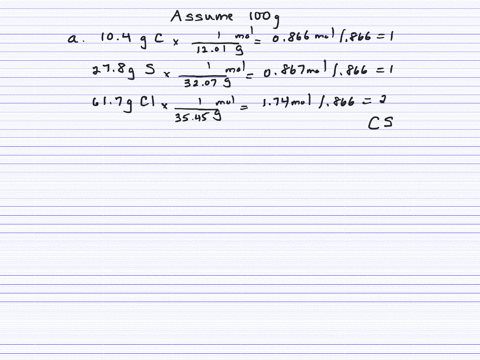 Assume 100g
a. 10.4 g C × 1 mol / 12.01 g = 0.866 mol /.866 = 1
27.8g S × 1 mol / 32.07 g = 0.867mol /.866 = 1
61.7g Cl × 1 mol / 35.45 g = 1.74mol /.866 = 2
CS